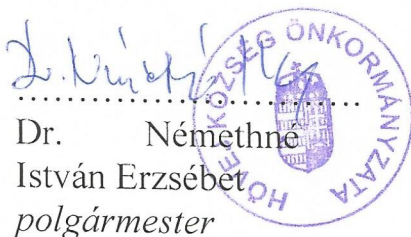 Dr. Némethné
István Erzsébet
polgármester
HŐVEJ KÖZSÉG ÖNKORMÁNYZATA